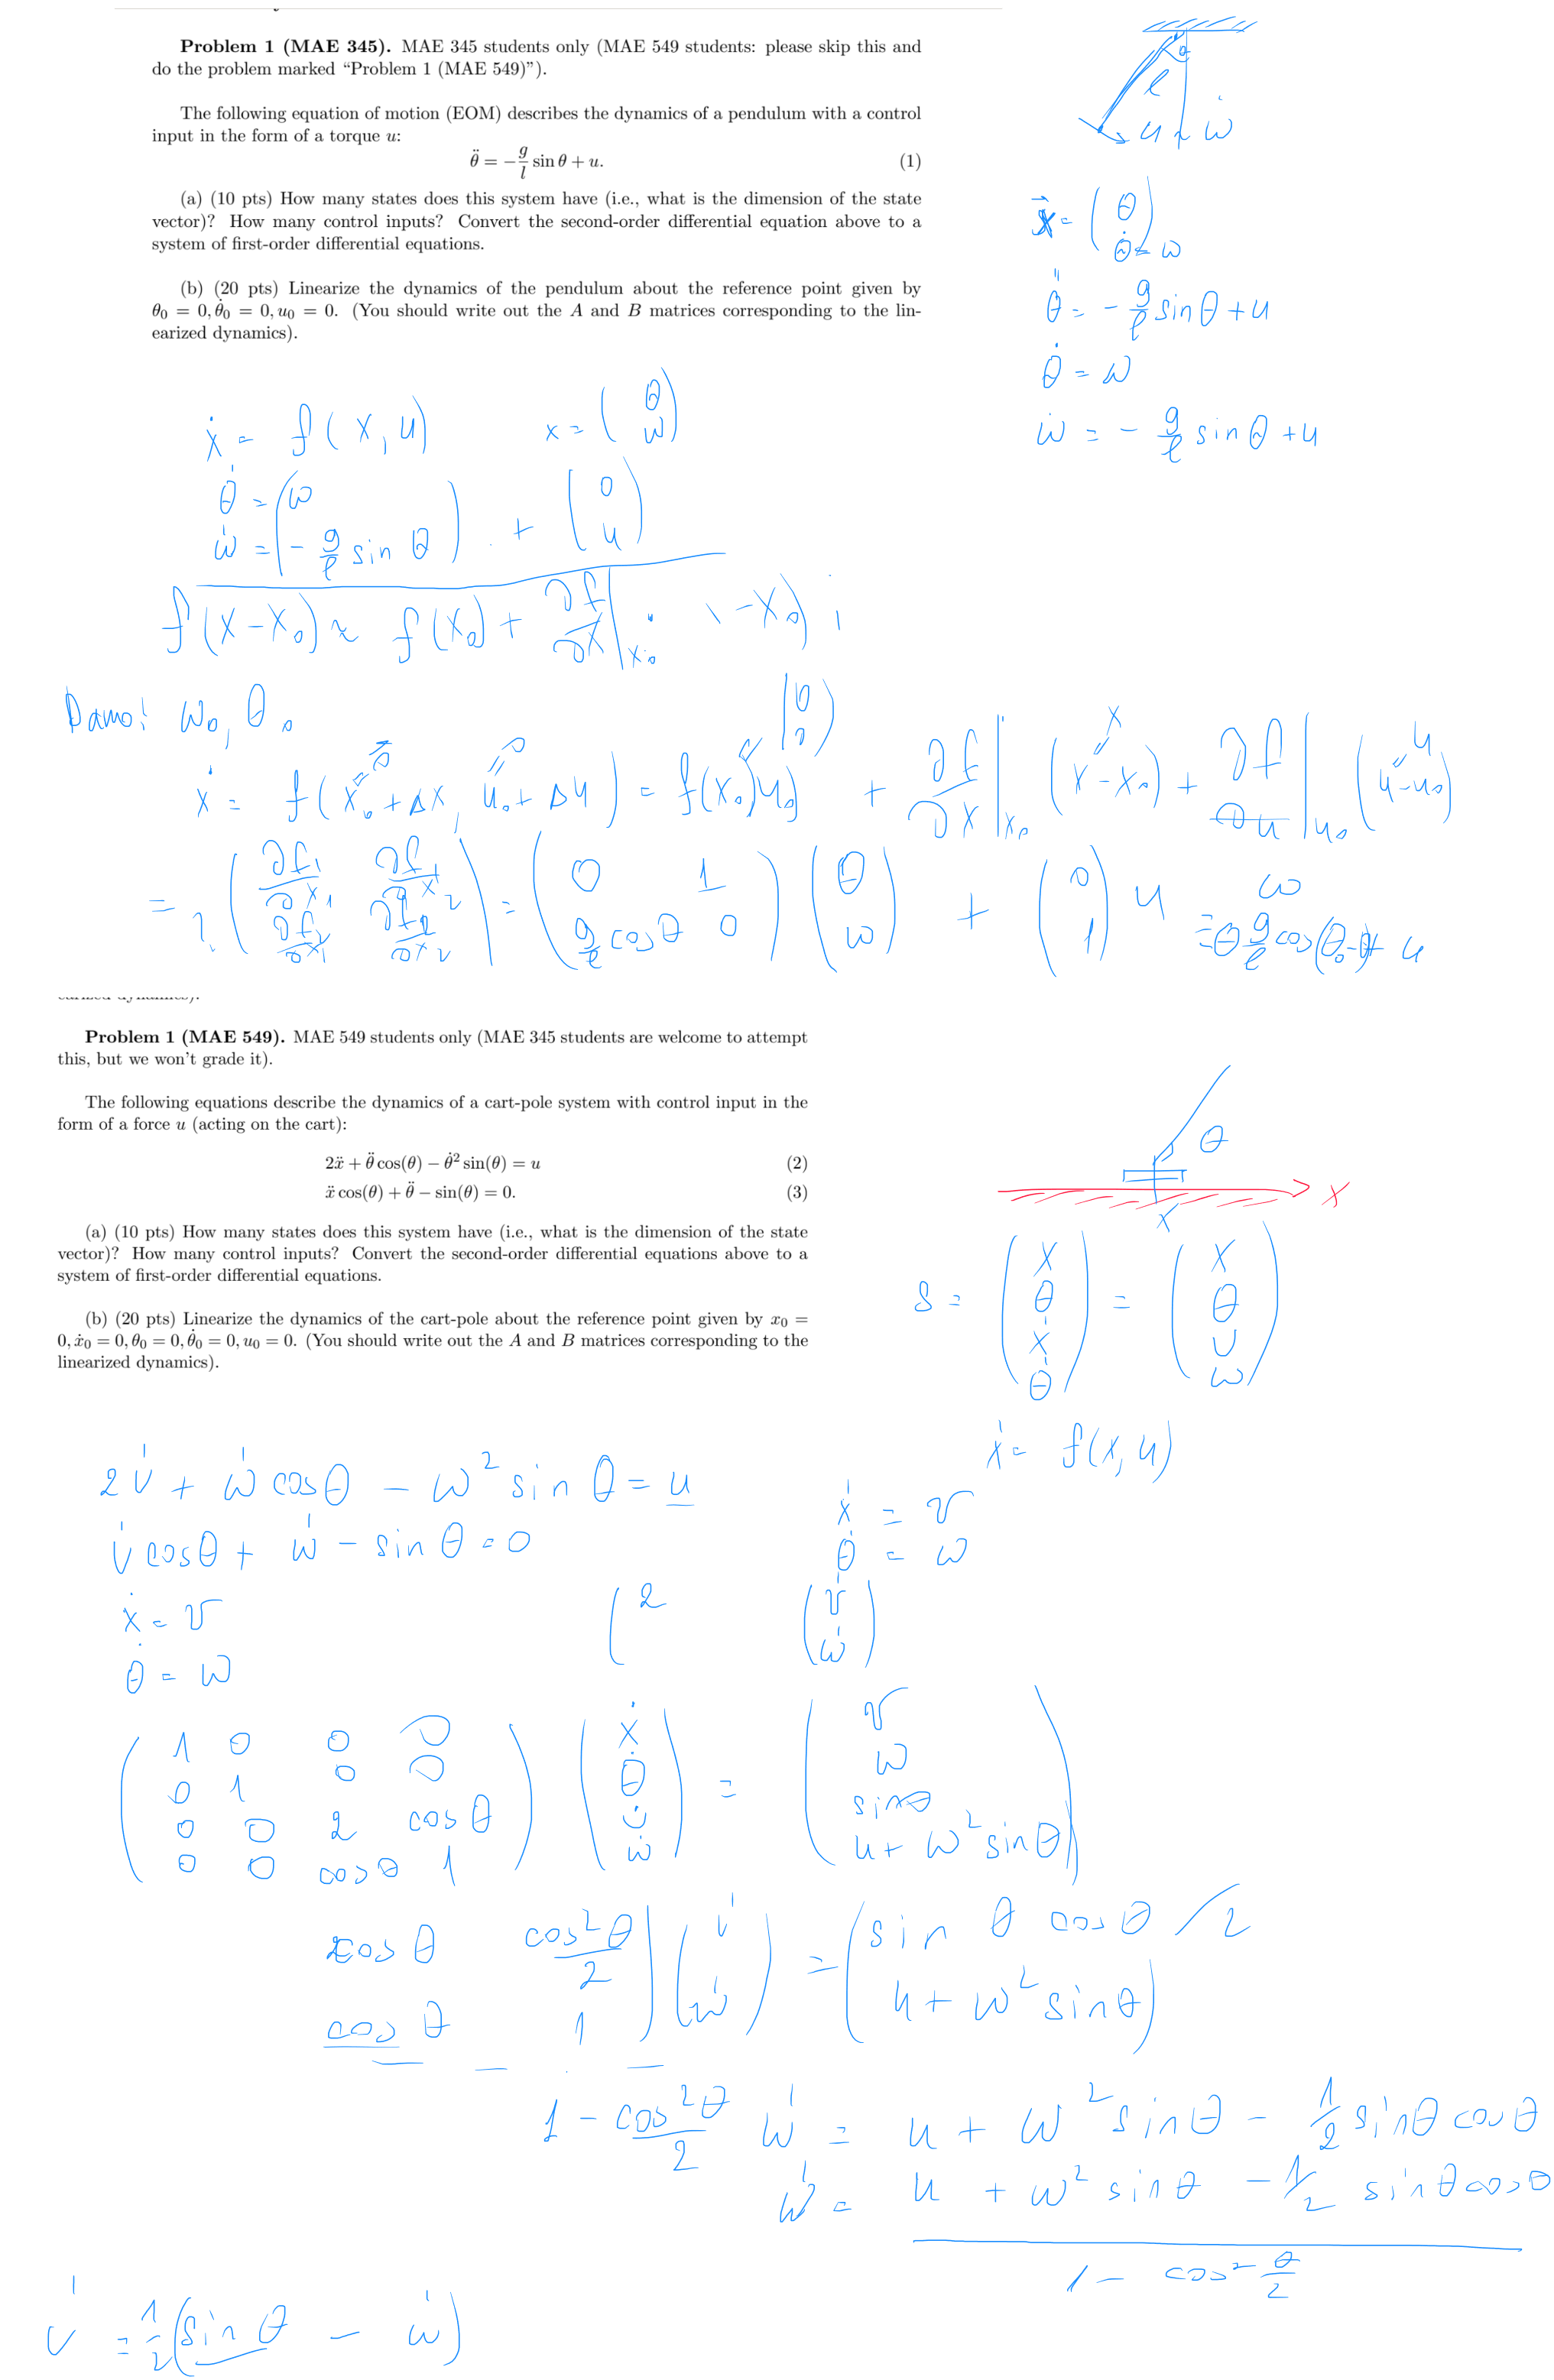 Problem 1 (MAE 345). MAE 345 students only (MAE 549 students: please skip this and
do the problem marked “Problem 1 (MAE 549)”).
The following equation of motion (EOM) describes the dynamics of a pendulum with a control
input in the form of a torque u:
θ̈ = −g/l sin θ + u. (1)
(a) (10 pts) How many states does this system have (i.e., what is the dimension of the state
vector)? How many control inputs? Convert the second-order differential equation above to a
system of first-order differential equations.
(b) (20 pts) Linearize the dynamics of the pendulum about the reference point given by
θ₀ = 0, θ̇₀ = 0, u₀ = 0. (You should write out the A and B matrices corresponding to the lin-
earized dynamics).
θ
l
u ~ ω̇
x⃗ = ( θ
θ̇ = ω )
θ̈ = − g/l sin θ + u
θ̇ = ω
ω̇ = − g/l sin θ + u
ẋ = f(x, u) x = ( θ ω )
θ̇ = ( ω
ω̇ = − g/l sin θ ) + ( 0 u )
f(x−x₀) ≈ f(x₀) + ∂f/∂x |x₀ −x₀)
Damo: ω₀, θ₀
(0 0)
ẋ = f(x₀ + Δx, u₀ + Δu) = f(x₀, u₀) + ∂f/∂x |x₀ (x−x₀) + ∂f/∂u |u₀ (u−u₀)
= ( ∂f₁/∂x₁ ∂f₁/∂x₂ ∂f₂/∂x₁ ∂f₂/∂x₂ ) = ( 0 1 g/l cos θ 0 ) ( θ ω ) + ( 0 1 ) u
Problem 1 (MAE 549). MAE 549 students only (MAE 345 students are welcome to attempt
this, but we won’t grade it).
The following equations describe the dynamics of a cart-pole system with control input in the
form of a force u (acting on the cart):
2ẍ + θ̈ cos(θ) − θ̇² sin(θ) = u (2)
ẍ cos(θ) + θ̈ − sin(θ) = 0. (3)
(a) (10 pts) How many states does this system have (i.e., what is the dimension of the state
vector)? How many control inputs? Convert the second-order differential equations above to a
system of first-order differential equations.
(b) (20 pts) Linearize the dynamics of the cart-pole about the reference point given by x₀ =
0, ẋ₀ = 0, θ₀ = 0, θ̇₀ = 0, u₀ = 0. (You should write out the A and B matrices corresponding to the
linearized dynamics).
θ
x
x
s = ( x θ ẋ θ̇ ) = ( x θ v ω )
ẋ = f(x, u)
2v̇ + ω̇ cosθ − ω² sin θ = u
v̇ cosθ + ω̇ − sin θ = 0
ẋ = v
θ̇ = ω
ẋ = v
θ̇ = ω
( 2 ( v̇ ω̇ )
( 1 0 0 0
0 1 0 0
0 0 2 cos θ
0 0 cos θ 1 ) ( ẋ θ̇ v̇ ω̇ ) = ( v ω sinθ u + ω² sinθ )
cos θ cos²θ/2
cos θ 1 ) ( v̇ ω̇ ) = ( sin θ cos θ / 2
u + ω² sinθ )
1 − cos²θ/2 ω̇ = u + ω² sinθ − 1/2 sinθ cosθ
ω̇ = u + ω² sinθ − 1/2 sinθ cosθ
1 − cos² θ/2
v̇ = 1/2 (sin θ − ω̇)